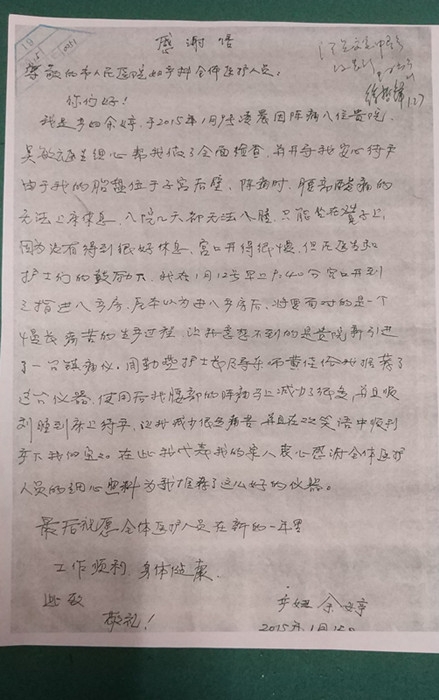 感谢信
尊敬的市人民医院妇产科全体医护人员:
你们好!
我是产妇余婷,于2015年1月9号凌晨因阵痛入住贵院,
吴敏医生细心帮我做了全面检查,并开导我安心待产
由于我的胎盘位于子宫后壁,阵痛时,腰部酸痛的
无法上床休息,入院几天都无法入睡,只能坐在凳子上,
因为没有得到很好休息,宫口开得很慢,但在医生和
护士们的鼓励下,我在1月12号早上9:40分宫口开到
三指进入产房,原本以为进入产房后,将要面对的是一个
漫长痛苦的生产过程,让我意想不到的是贵院新引进
了一台镇痛仪,周勤莲护士
这台仪器,使用后我腰部的阵痛马上减少了很多,并且顺
利睡到床上待产,让我减少很多痛苦,并且在欢笑语中顺利
产下我们宝宝。在此我代表我的家人衷心感谢全体医护
人员的细心照料为我推荐了这么好的仪器。
最后祝愿全体医护人员在新的一年里
工作顺利,身体健康
此致
敬礼!
产妇 余婷
2015年1月